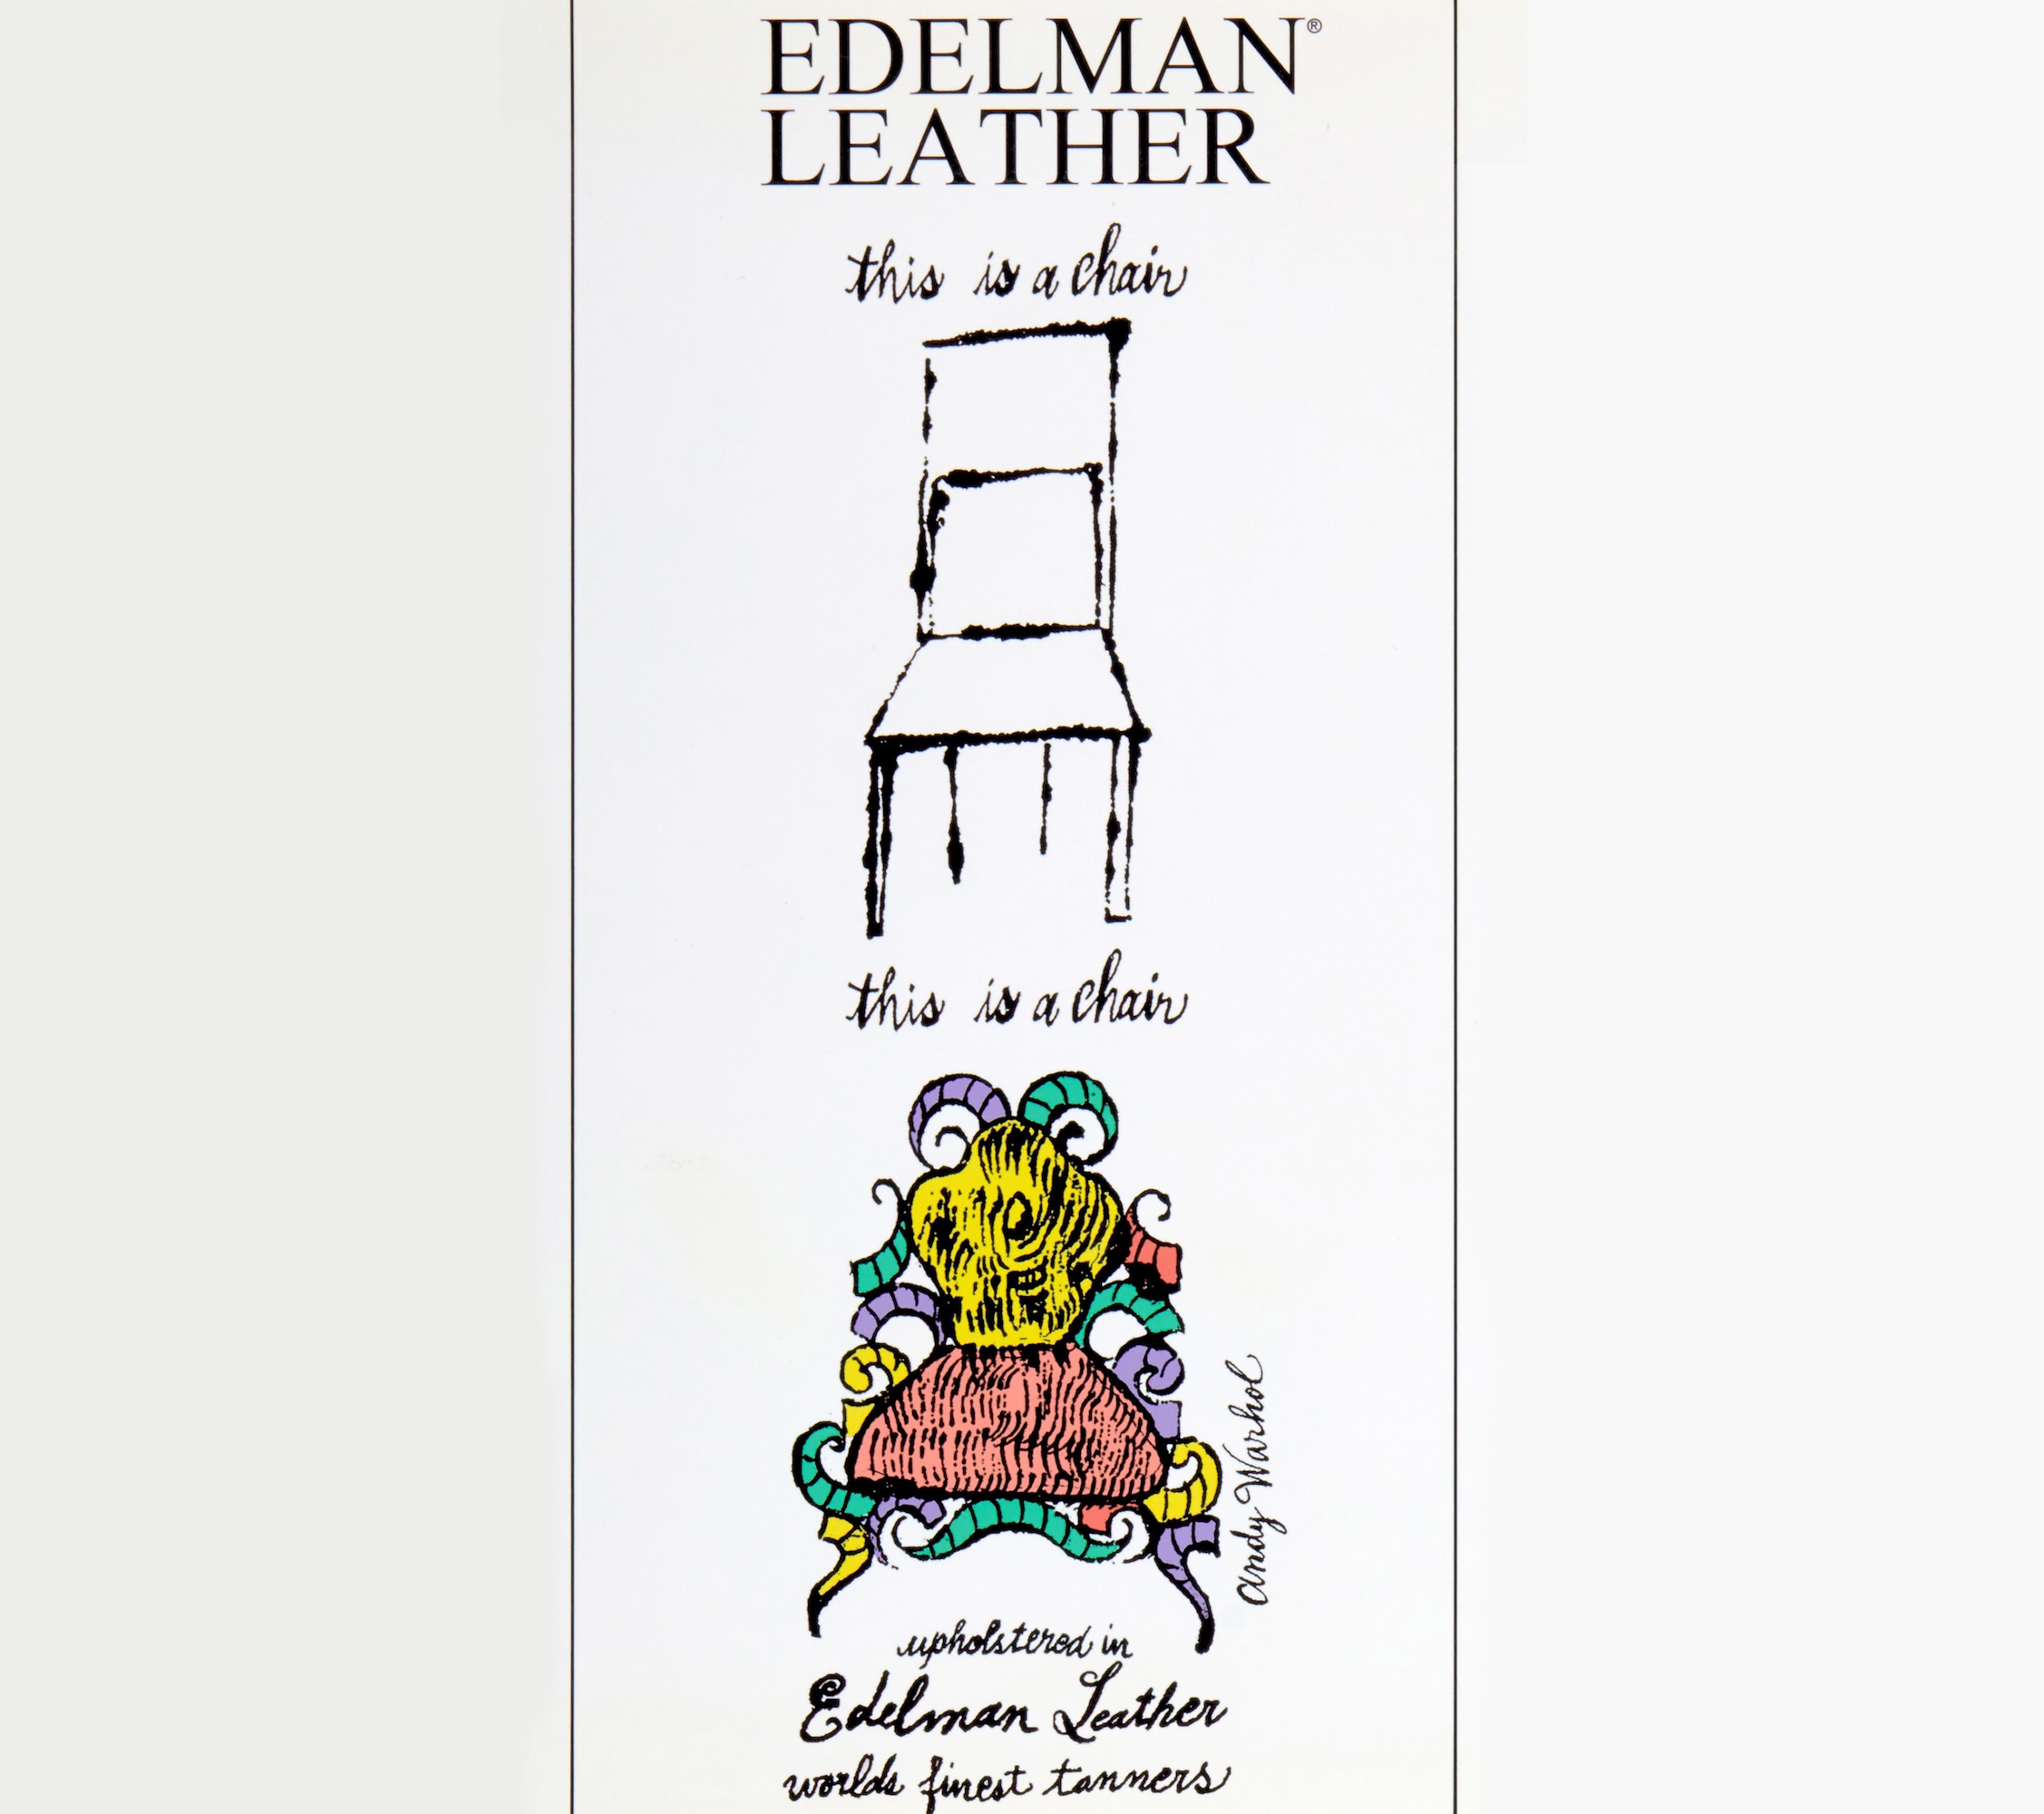 EDELMAN®
LEATHER
this is a chair
this is a chair
Andy Warhol
upholstered in
Edelman Leather
worlds finest tanners